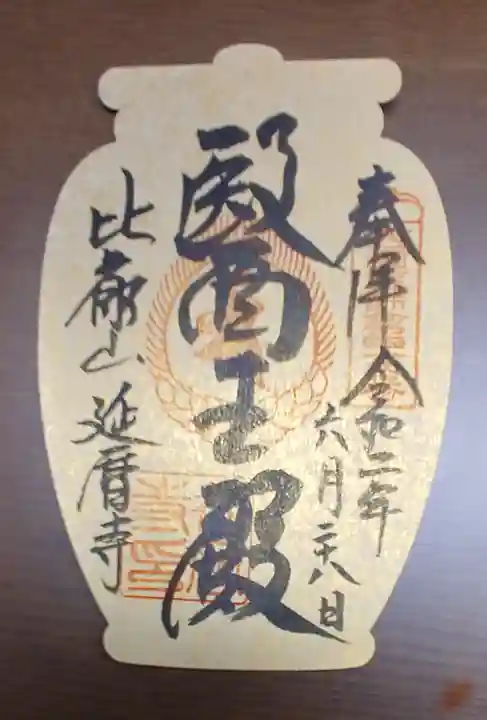 奉拝 令和二年
六月二十八日
醫王殿
比叡山 延暦寺